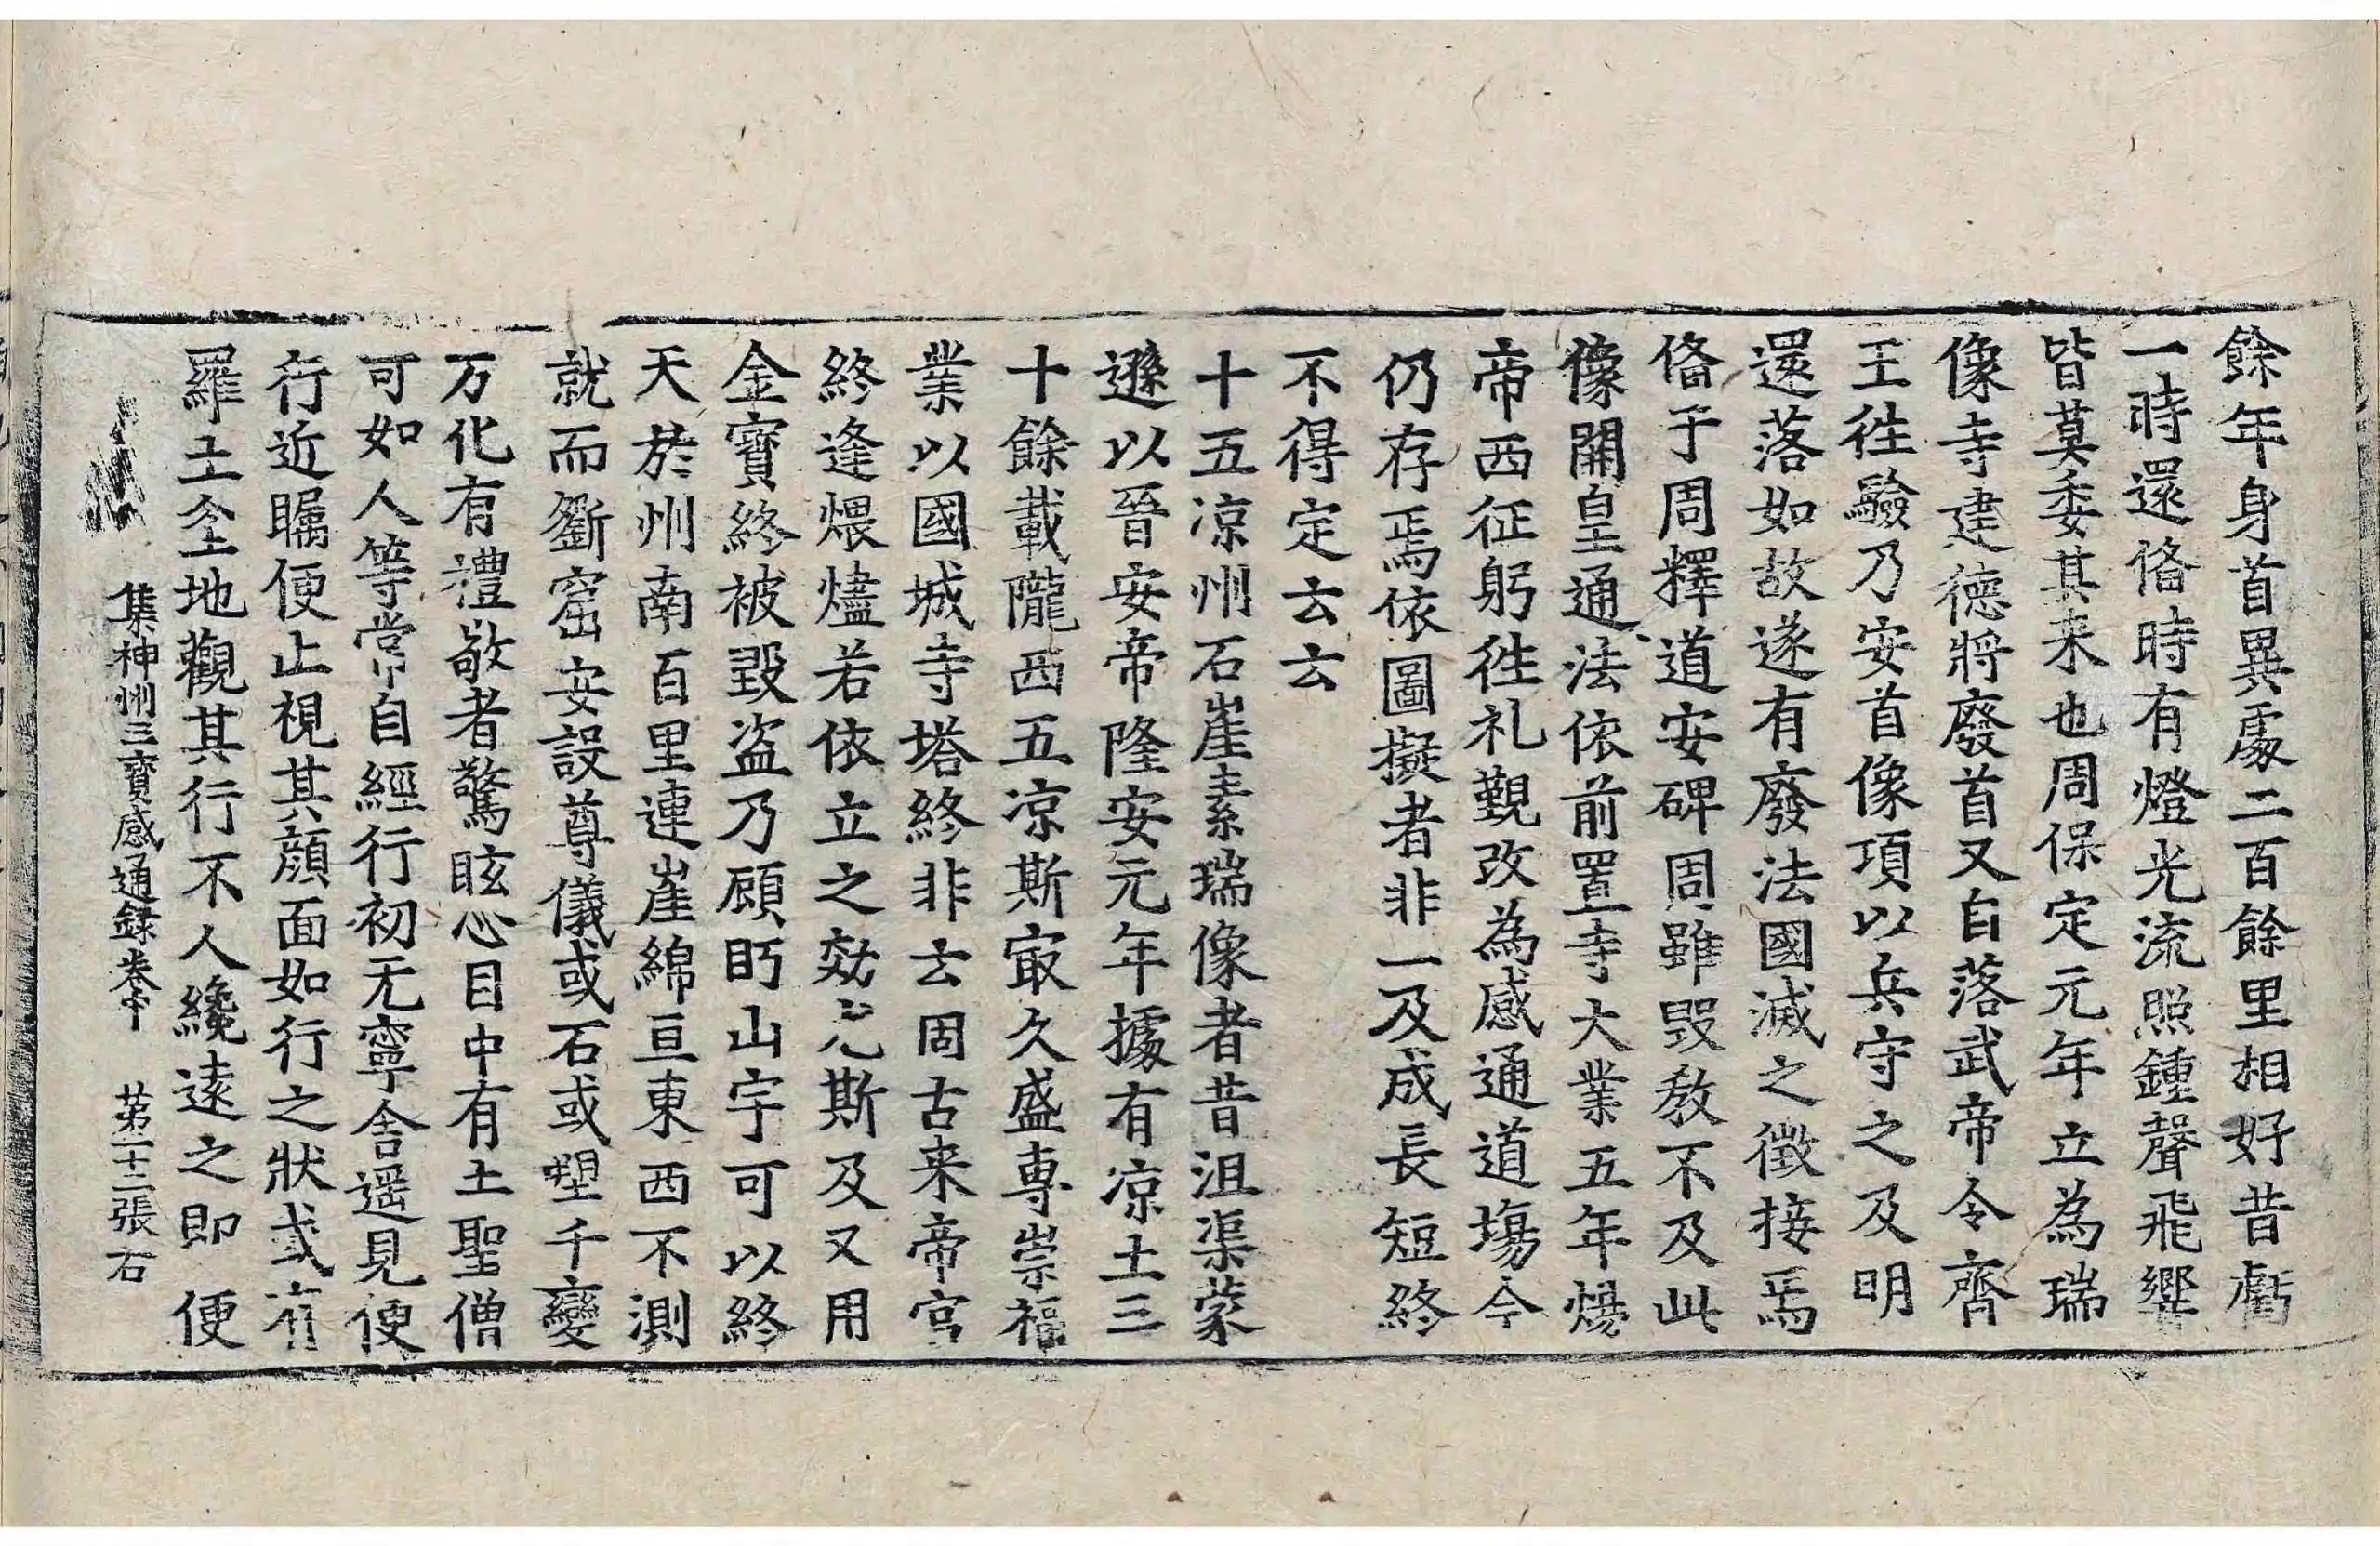 餘年身首異處二百餘里相好昔虧
一時還俻時有燈光流照鍾聲飛響
皆莫委其来也周保定元年立為瑞
像寺建德將廢首又自落武帝令齊
王徃驗乃安首像項以兵守之及明
還落如故遂有廢法國滅之徵接焉
俻于周釋道安碑周雖毀教不及此
像開皇通法依前置寺大業五年煬
帝西征躬徃礼覲改為感通道場今
仍存焉依圖擬者非一及成長短終
不得定云云
十五凉州石崖素瑞像者昔沮渠蒙
遜以晉安帝隆安元年據有凉土三
十餘載隴西五凉斯㝡久盛專崇福
業以國城寺塔終非云固古来帝宮
終逢煨燼若依立之効尤斯及又用
金寶終被毀盗乃顧眄山宇可以終
天於州南百里連崖綿亘東西不測
就而斵窟安設尊儀或石或塑千變
万化有禮敬者驚眩心目中有土聖僧
可如人等常自經行初无寧舎遥見便
行近矚便止視其顔面如行之狀或有
羅土坌地觀其行不人纔遠之即便
集神州三寶感通録卷中 苐二十二張 右